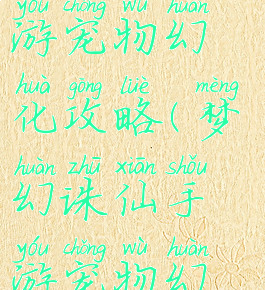 yóu chǒng wù huàn
游宠物幻
huà gōng lüè mèng
化攻略(梦
huàn zhū xiān shǒu
幻诛仙手
yóu chǒng wù huàn
游宠物幻